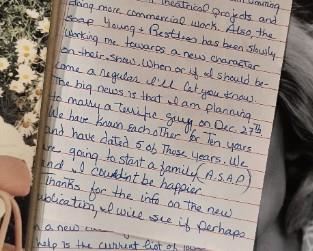 theatrical projects and
doing more commercial work. Also, the
soap Young & Restless has been slowly
working me towards a new character
on their show. When or if I should be-
come a regular I'll let you know.
The big news is that I am planning
to marry a terrific guy on Dec. 27th
We have known each other for Ten years
and have dated 5 of those years. We
are going to start a family (A.S.A.P)
and I couldn't be happier
Thanks for the info on the new
publication, I will see if perhaps
a new
help is the current list of